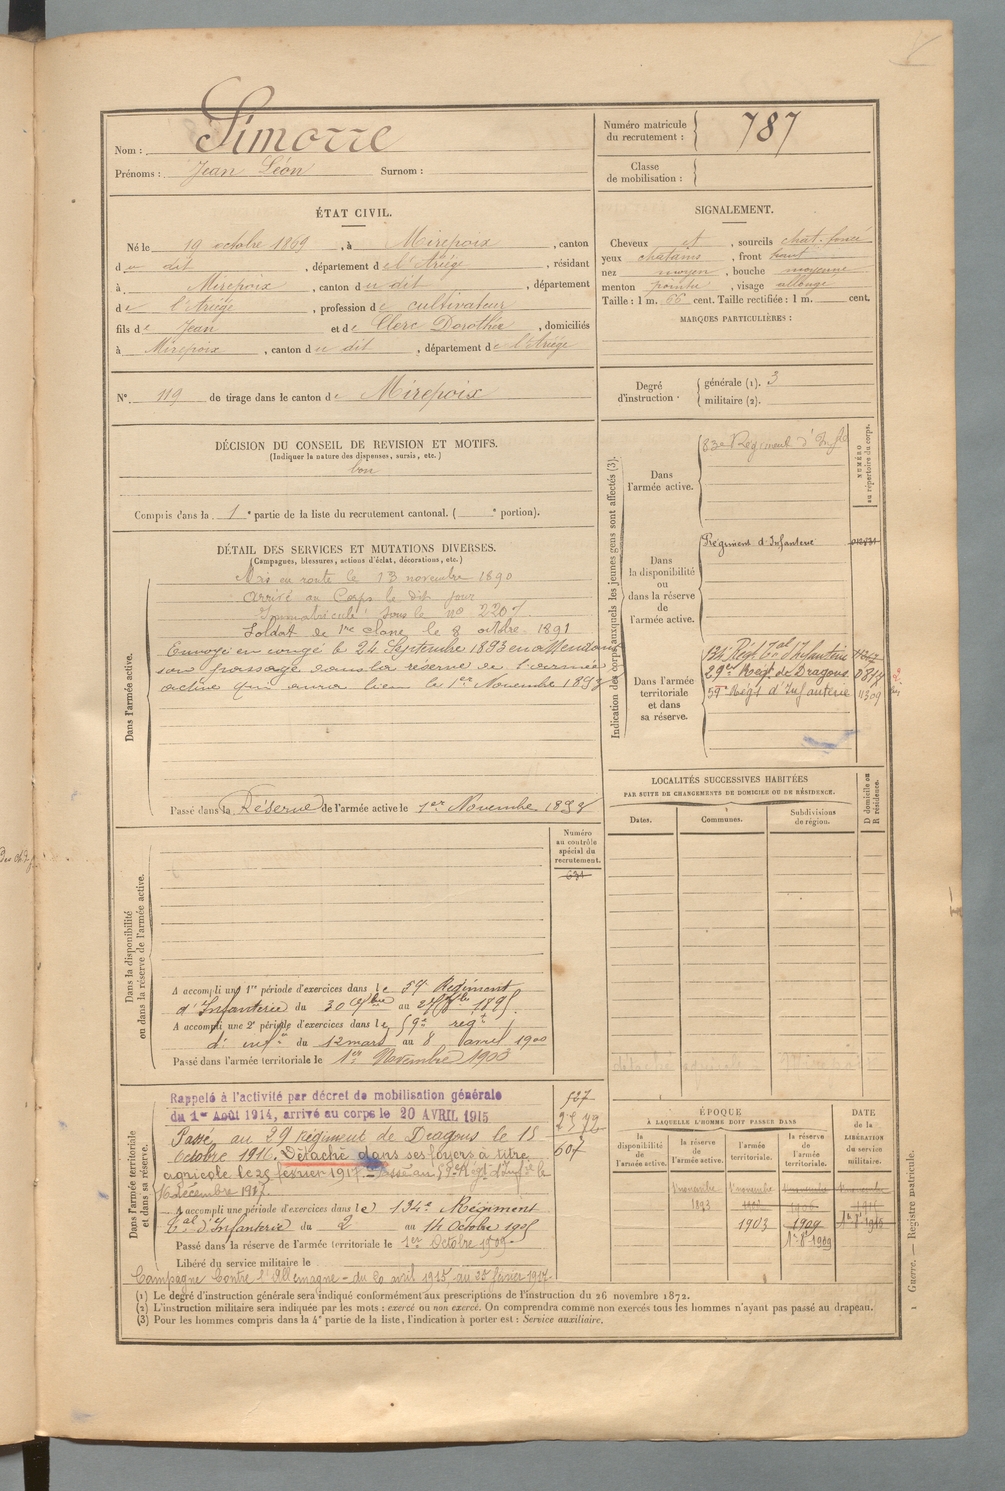 Simorre
Nom :
Prénoms : Jean Léon Surnom :
Numéro matricule du recrutement : 787
Classe de mobilisation :
ÉTAT CIVIL.
Né le 19 octobre 1869, à Mirepoix, canton
du dit, département de l'Ariège, résidant
à Mirepoix, canton du dit, département
de l'Ariège, profession de cultivateur
fils de Jean et de Clerc Dorothée, domiciliés
à Mirepoix, canton du dit, département de l'Ariège
N° 119 de tirage dans le canton de Mirepoix
SIGNALEMENT.
Cheveux et, sourcils chat. foncé
yeux chatains, front haut
nez moyen, bouche moyenne
menton pointu, visage allongé
Taille : 1 m. 66 cent. Taille rectifiée : 1 m. cent.
MARQUES PARTICULIÈRES :
Degré d'instruction
générale (1). 3
militaire (2).
DÉCISION DU CONSEIL DE REVISION ET MOTIFS.
(Indiquer la nature des dispenses, sursis, etc.)
bon
Compris dans la 1e partie de la liste du recrutement cantonal. ( e portion).
DÉTAIL DES SERVICES ET MUTATIONS DIVERSES.
(Campagnes, blessures, actions d'éclat, décorations, etc.)
Dans l'armée active.
Mis en route le 13 novembre 1890
Arrivé au Corps le dit jour
Immatriculé sous le no 2207
Soldat de 1re classe le 8 octobre 1891
Envoyé en congé le 24 Septembre 1893 en attendant
son passage dans la réserve de l'armée
active qui aura lieu le 1er Novembre 1893
Passé dans la Réserve de l'armée active le 1er Novembre 1893
Indication des corps auxquels les jeunes gens sont affectés (3).
NUMÉRO au répertoire du corps.
Dans l'armée active.
83e Régiment d'Infie
Dans la disponibilité ou dans la réserve de l'armée active.
Régiment d'Infanterie
Dans l'armée territoriale et dans sa réserve.
134 Régt Tal d'Infanterie
29e Régt de Dragons
59e Régt d'Infanterie 11309
LOCALITÉS SUCCESSIVES HABITÉES
PAR SUITE DE CHANGEMENTS DE DOMICILE OU DE RÉSIDENCE.
Dates. Communes. Subdivisions de région.
D domicile ou R résidence.
Dans la disponibilité ou dans la réserve de l'armée active.
Numéro au contrôle spécial du recrutement.
631
A accompli une 1re période d'exercices dans le 59e Régiment
d'Infanterie du 30 au 1895
A accompli une 2e période d'exercices dans le 59e régt
d'infie du 12 mars au 8 avril 1900
Passé dans l'armée territoriale le 1er Novembre 1903
Dans l'armée territoriale et dans sa réserve.
Rappelé à l'activité par décret de mobilisation générale
du 1er Août 1914, arrivé au corps le 20 AVRIL 1915
Passé au 29 régiment de Dragons le 15
Octobre 1916. Détaché dans ses foyers à titre
agricole le 25 février 1917. Passé au 59e Régt d'Infie le
16 décembre 1917.
A accompli une période d'exercices dans le 134e Régiment
Tal d'Infanterie du 2 au 14 Octobre 1905
Passé dans la réserve de l'armée territoriale le 1er Octobre 1909.
Libéré du service militaire le
Campagne Contre l'Allemagne - du 20 avril 1915 au 25 février 1917
527
2572
607
ÉPOQUE
À LAQUELLE L'HOMME DOIT PASSER DANS
DATE de la LIBÉRATION DU SERVICE militaire.
la disponibilité de l'armée active.
la réserve de l'armée active.
l'armée territoriale.
la réserve de l'armée territoriale.
1 novembre 1893
1 novembre 1903
1909
(1) Le degré d'instruction générale sera indiqué conformément aux prescriptions de l'instruction du 26 novembre 1872.
(2) L'instruction militaire sera indiquée par les mots : exercé ou non exercé. On comprendra comme non exercés tous les hommes n'ayant pas passé au drapeau.
(3) Pour les hommes compris dans la 4e partie de la liste, l'indication à porter est : Service auxiliaire.
1 Guerre. — Registre matricule.